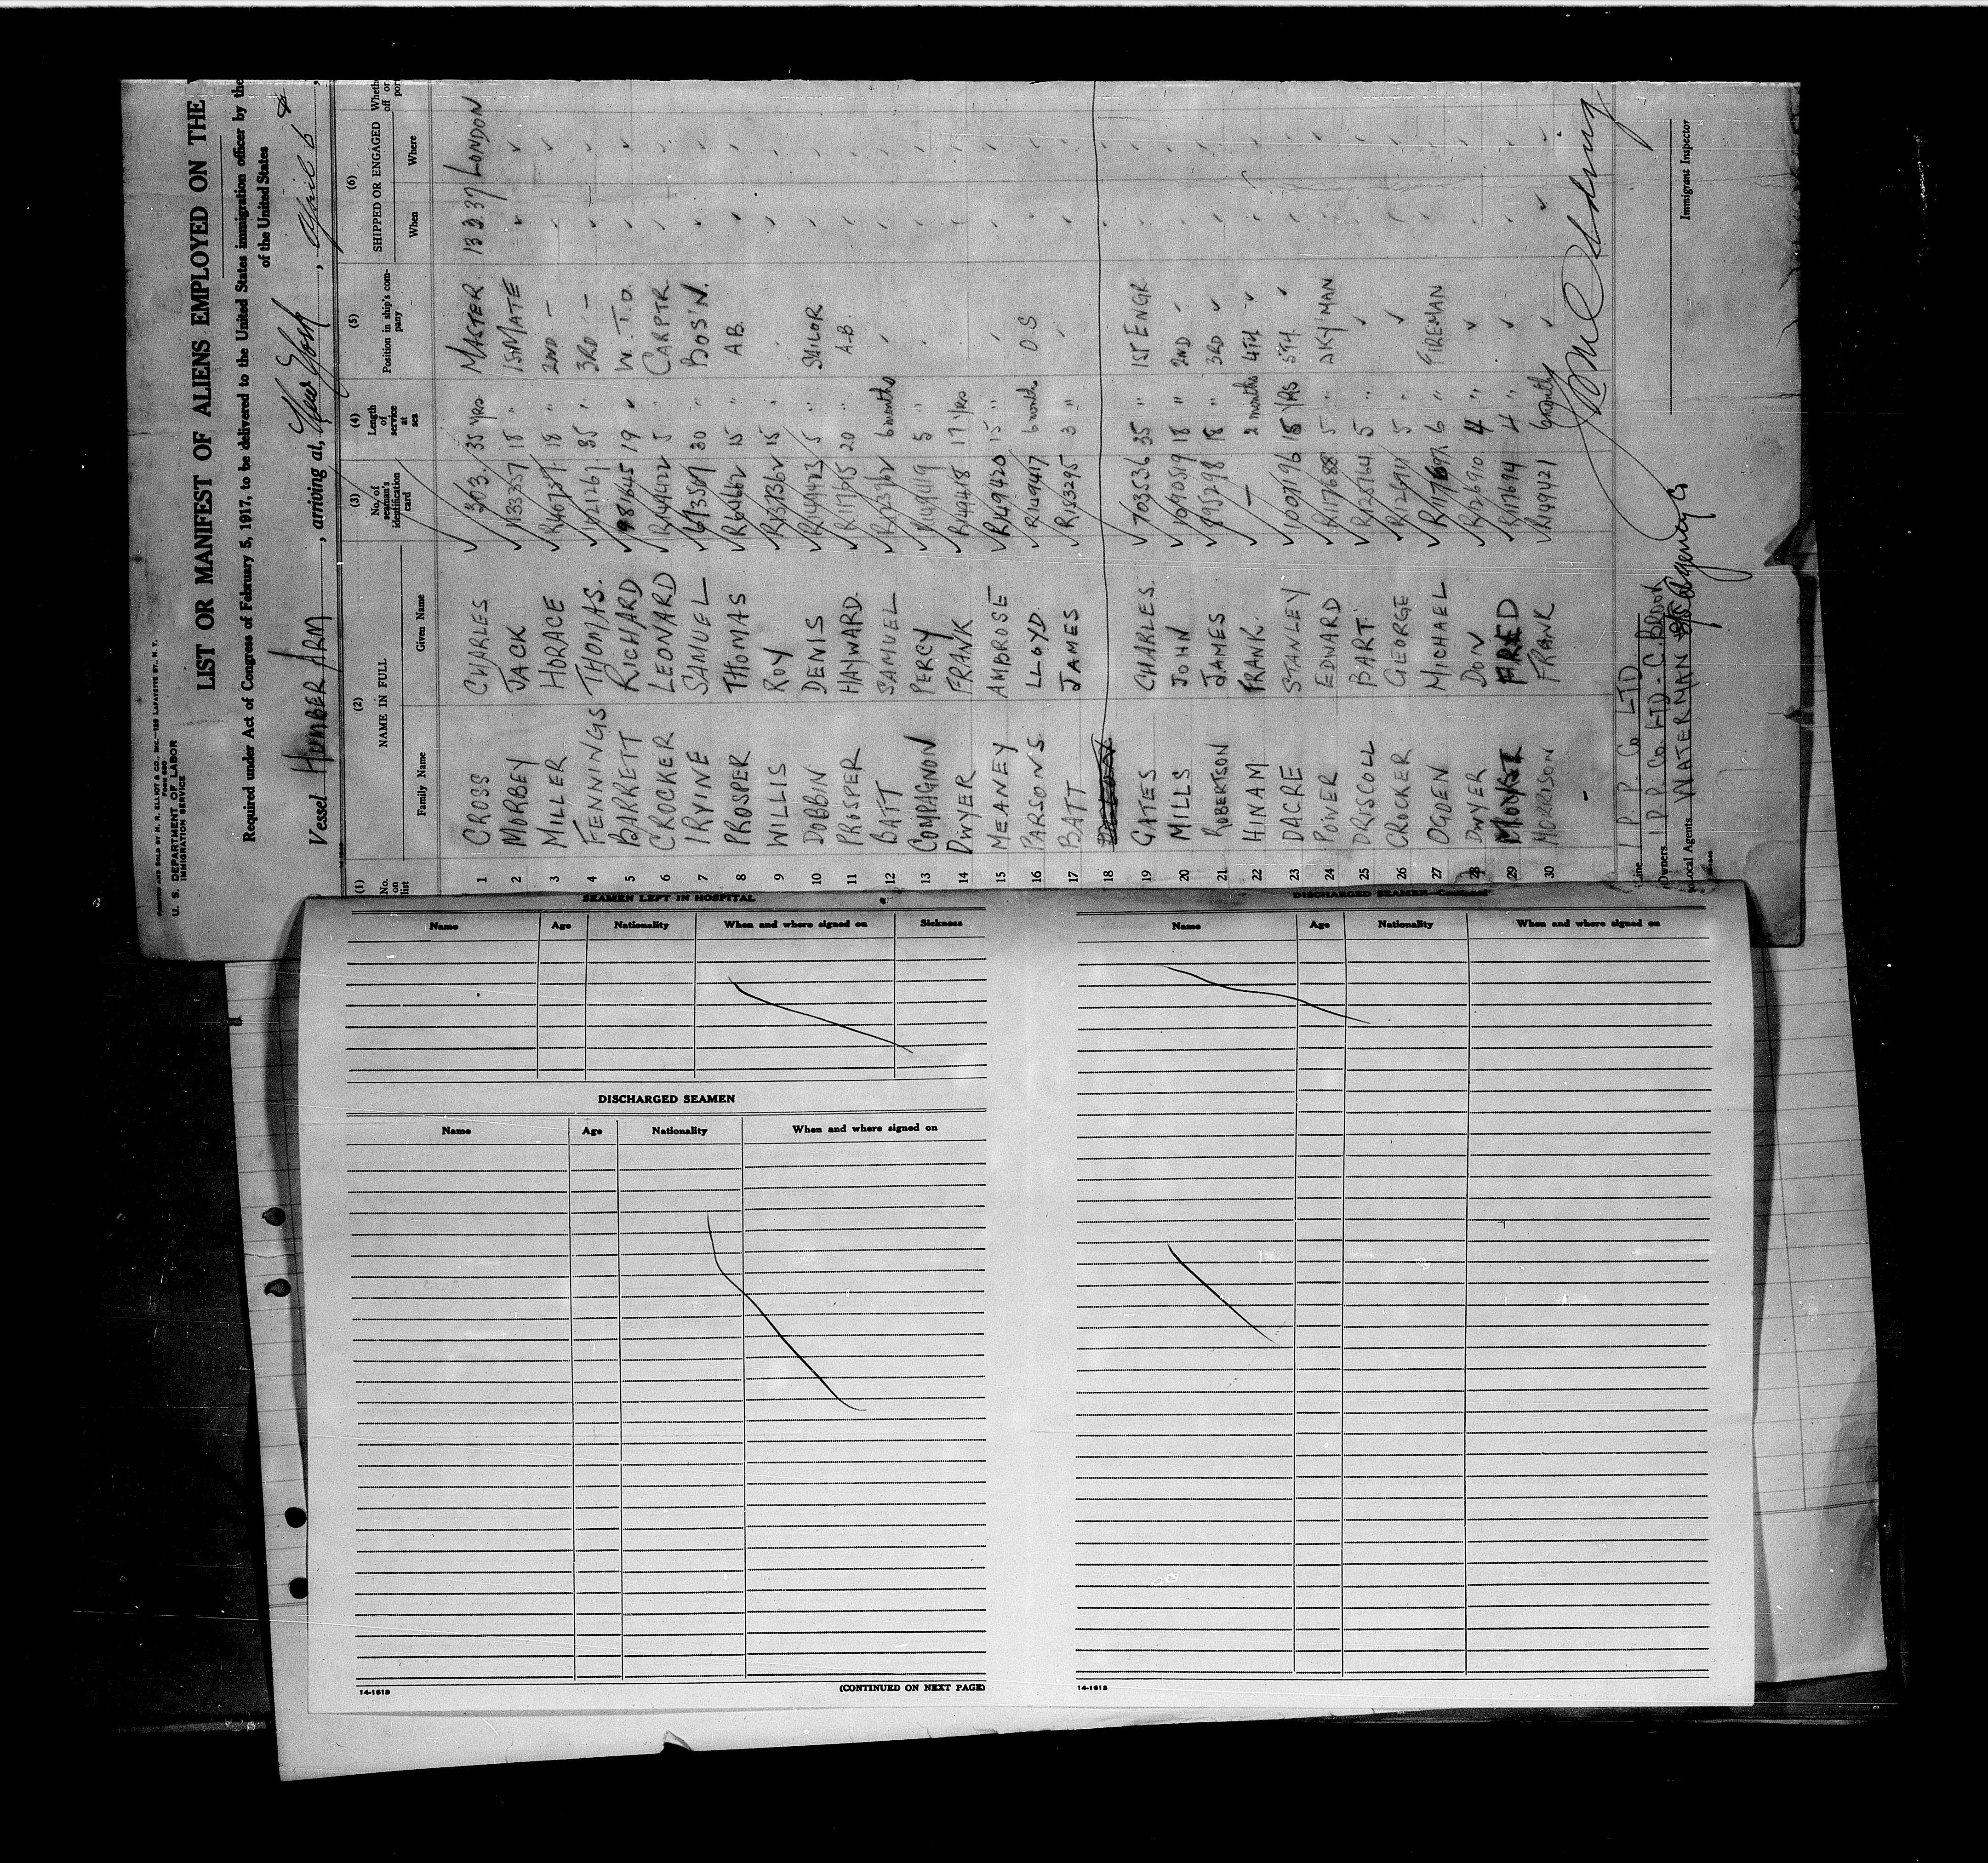 PRINTED AND SOLD BY H. R. ELLIOT & CO., INC.—129 LAFAYETTE ST., N. Y.
FORM 680
U. S. DEPARTMENT OF LABOR
IMMIGRATION SERVICE
LIST OR MANIFEST OF ALIENS EMPLOYED ON THE
Required under Act of Congress of February 5, 1917, to be delivered to the United States immigration officer by the
of the United States
Vessel HUMBER ARM, arriving at, New York, April 6
(1) (2) (3) (4) (5) (6)
No. on list NAME IN FULL No. of seaman's identification card Length of service at sea Position in ship's company SHIPPED OR ENGAGED
Family Name Given Name When Where
1 CROSS CHARLES 3603. 35 yrs MASTER 13 2 37 LONDON
2 MORBEY JACK 133357 18 " 1st MATE
3 MILLER HORACE R40757 18 " 2ND –
4 FENNINGS THOMAS. 35 " 3RD –
5 BARRETT RICHARD 981645 19 W. T. O.
6 CROCKER LEONARD R149422 5 CARPTR.
7 IRVINE SAMUEL 613507 30 " BOS'N.
8 PROSPER THOMAS R64662 15 " A.B.
9 WILLIS ROY 15 "
10 DOBBIN DENIS R149423 5 " SAILOR
11 PROSPER HAYWARD. R117615 20 " A.B.
12 BATT SAMUEL 6 months
13 COMPAGNON PERCY R149419 5 "
14 DWYER FRANK R149418 17 yrs
15 MEANEY AMBROSE R149420 15 "
16 PARSONS LLOYD R149417 6 months O.S
17 BATT JAMES R153295 3 "
18
19 GATES CHARLES. 703536 35 " 1ST ENGR
20 MILLS JOHN 1090519 18 " 2ND
21 ROBERTSON JAMES 895298 18 " 3RD
22 HINAM FRANK. — 2 months 4TH
23 DACRE STANLEY 1007196 15 YRS 5TH.
24 POWER EDWARD R117688 5 " DKY'MAN
25 DRISCOLL BART. R125764 5 "
26 CROCKER GEORGE 5 "
27 OGDEN MICHAEL 6 " FIREMAN
28 DWYER DON R122690 4 "
29 FRED R117694 4 "
30 MORRISON FRANK R149421 6 months
Line I P P Co LTD
Owners I P P Co. LTD - C. B
Local Agents WATERMAN Agency Co
Immigrant Inspector
SEAMEN LEFT IN HOSPITAL
Name Age Nationality When and where signed on Sickness
DISCHARGED SEAMEN
Name Age Nationality When and where signed on
14-1613
(CONTINUED ON NEXT PAGE)
DISCHARGED SEAMEN—Continued
Name Age Nationality When and where signed on
14-1613